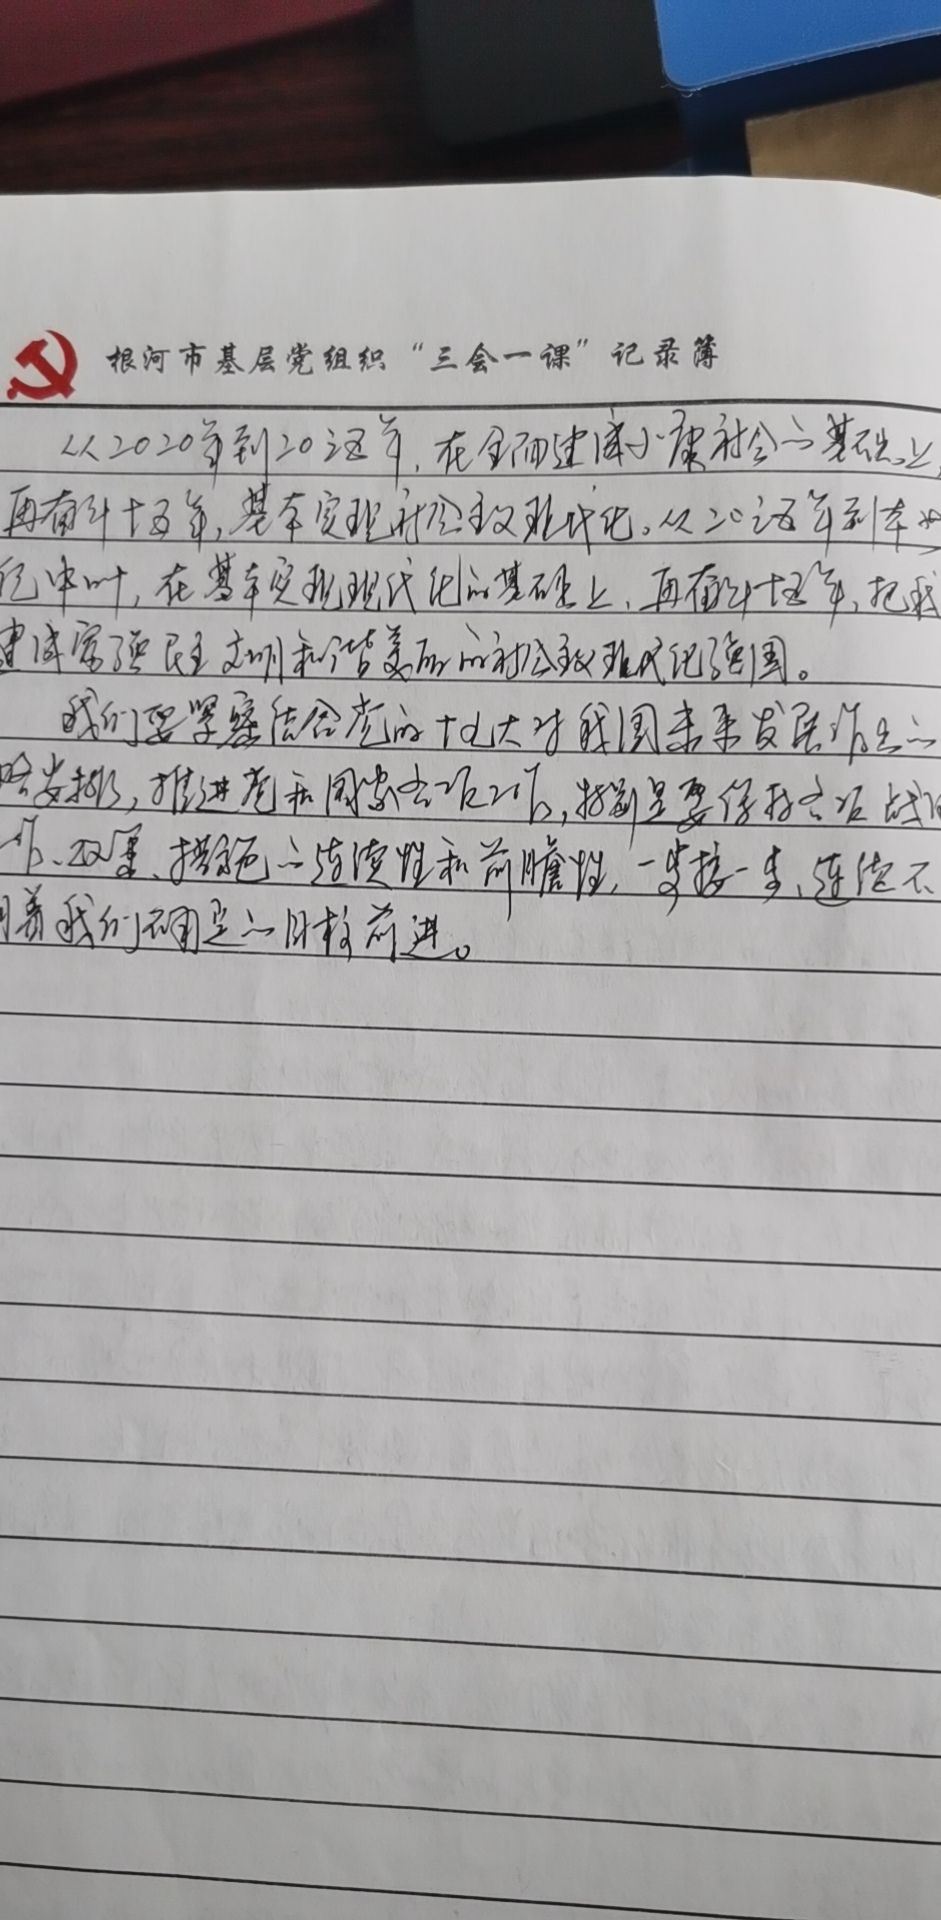 根河市基层党组织“三会一课”记录簿
从2020年到2035年，在全面建成小康社会的基础上，
再奋斗十五年，基本实现社会主义现代化。从2035年到本世
纪中叶，在基本实现现代化的基础上，再奋斗十五年，把我
建成富强民主文明和谐美丽的社会主义现代化强国。
我们要紧密结合党的十九大对我国未来发展作出的
略安排，推进党和国家各项工作，特别是要保持各项战略
、政策、措施的连续性和前瞻性，一步接一步，连续不
着我们确定的目标前进。